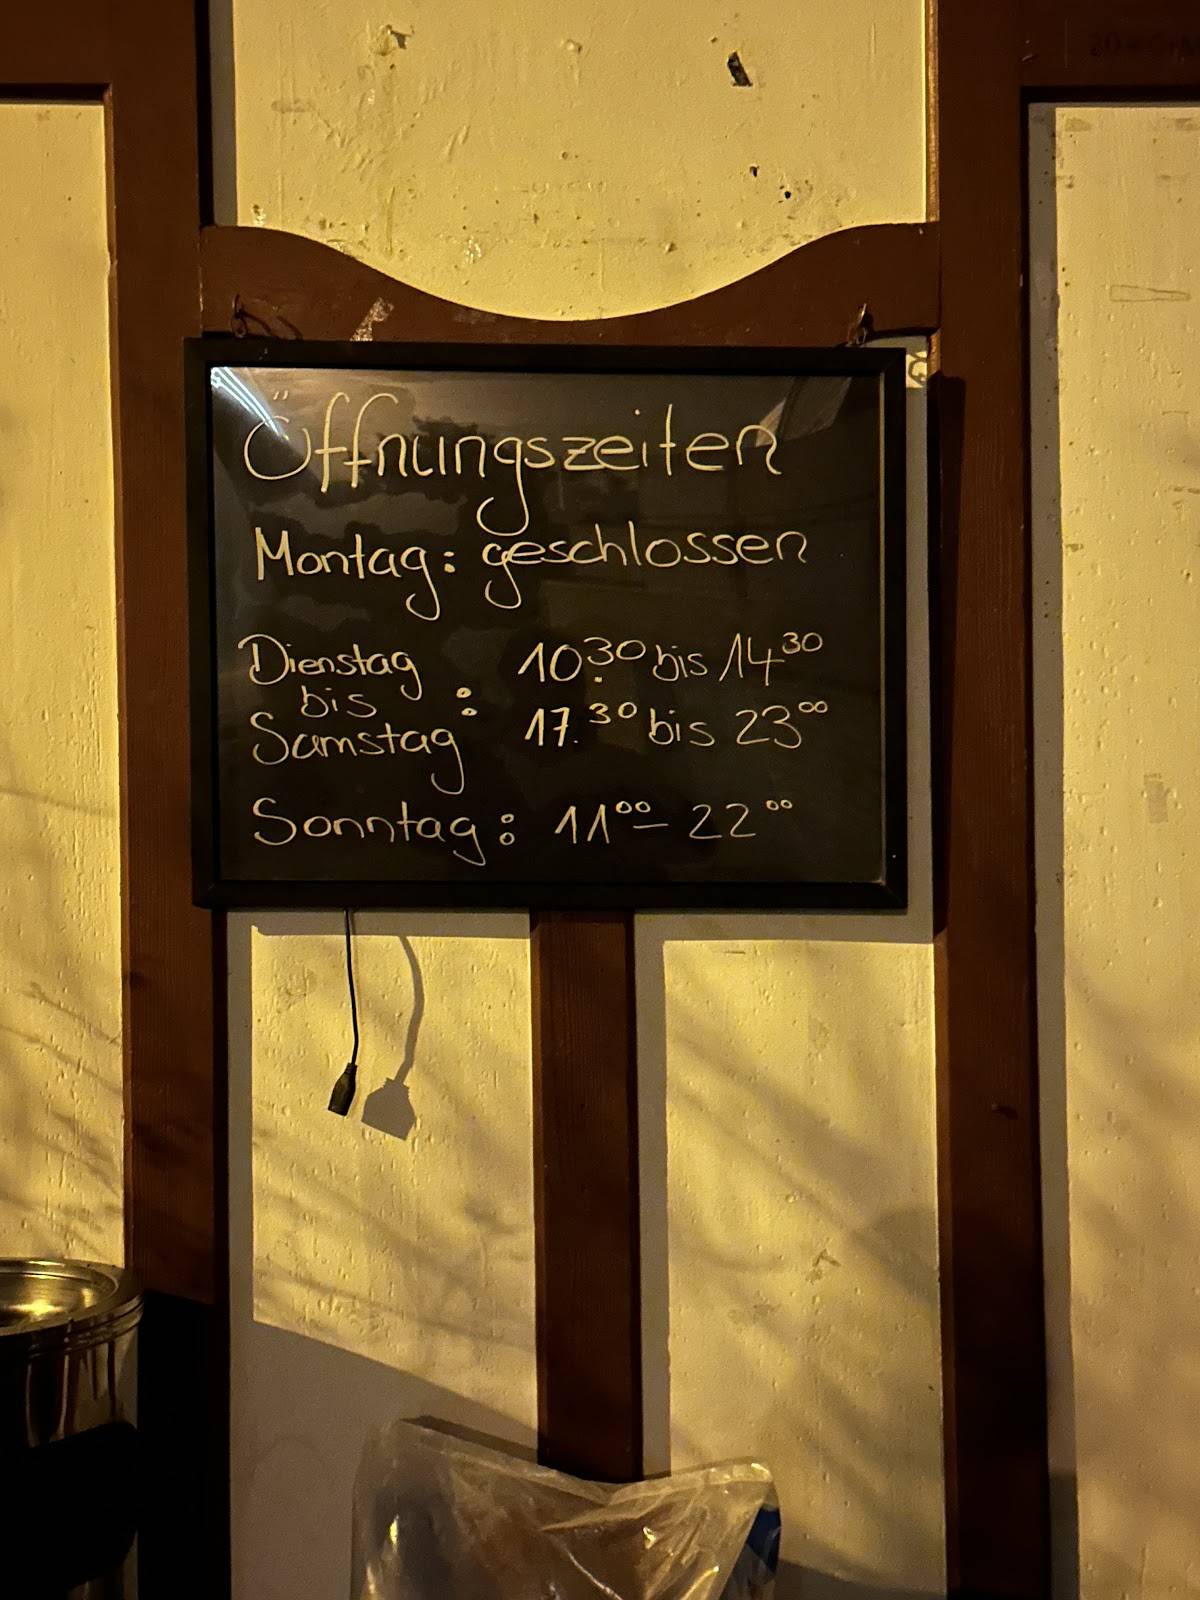 Öffnungszeiten
Montag: geschlossen
Dienstag 10.30 bis 14 30
bis :
Samstag 17.30 bis 23 00
Sonntag: 11 00 – 22 00